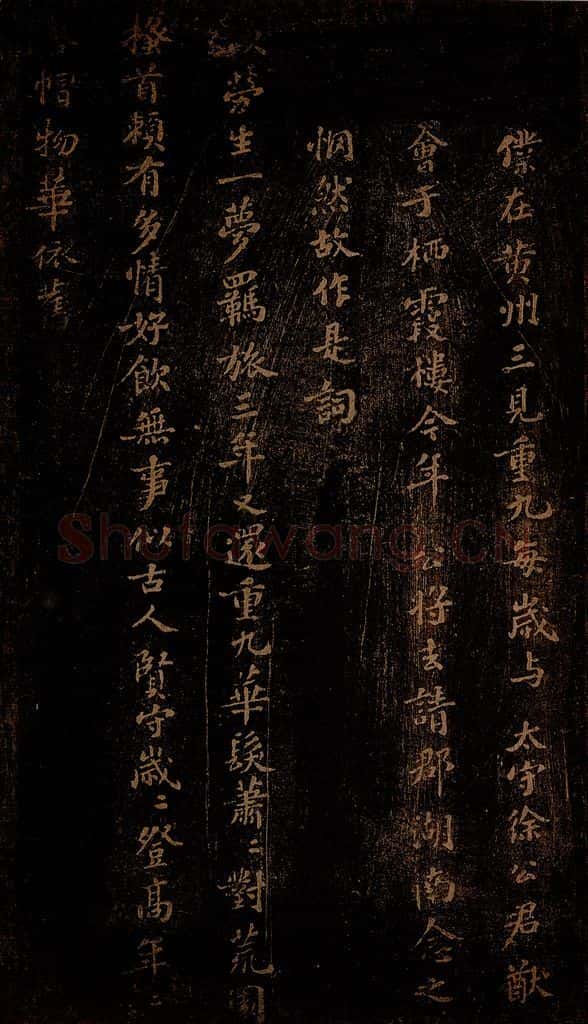 僕在黄州三見重九每歲与太守徐公君猷
會于栖霞樓今年公将去請郡湖南念之
惘然故作是詞
勞生一夢羈旅三年又還重九華髮蕭〻對荒園
搔首賴有多情好飲無事似古人賢守歲〻登高年〻
帽物華依舊
Shufawang.CN